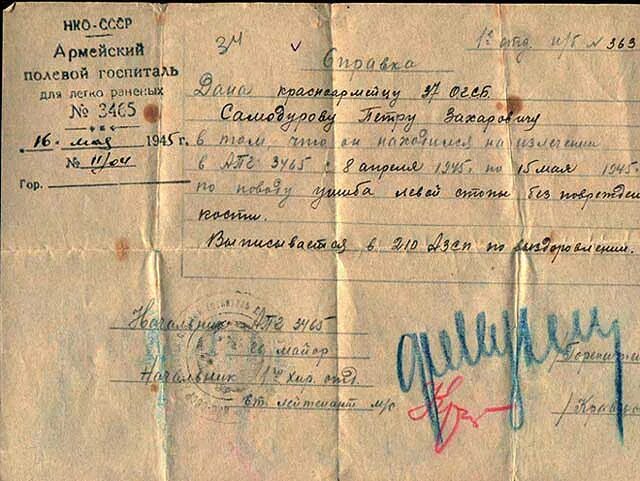 НКО-СССР
Армейский
полевой госпиталь
для легко раненых
№ 3465
16. мая 1945 г.
№ 11/04
Гор.
34
1е отд. и/б № 363
Справка
Дана красноармейцу 37 ОГСБ.
Самодурову Петру Захаровичу
в том, что он находился на излечении
в АПГ 3465 с 8 апреля 1945. по 15 мая 1945.
по поводу ушиба левой стопы без поврежден
кости.
Выписывается в 210 АЗСП по выздоровлении.
Начальник АПГ 3465
майор
Начальник 1го хир. отд.
лейтенант м/с